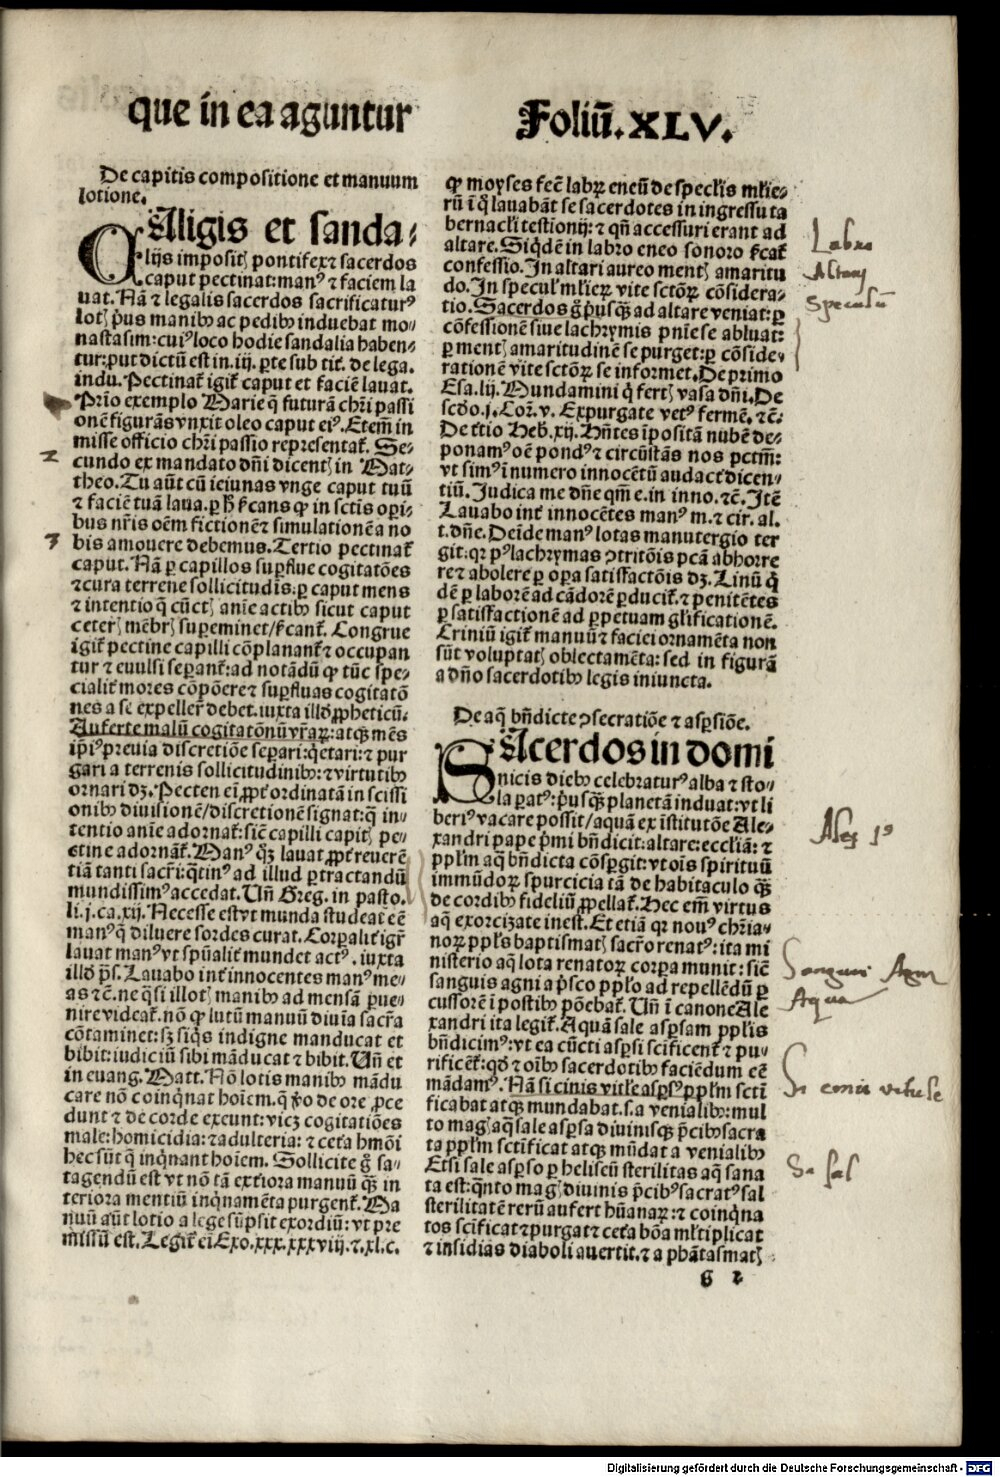 que in ea aguntur
Foliū. XLV.
De capitis compositione et manuum
lotione.
CAligis et sanda⸗
lijs impositꝭ pontifex ⁊ sacerdos
caput pectinat: manꝰ ⁊ faciem la
uat. Nā ⁊ legalis sacerdos sacrificaturꝰ
lotꝭ pꝰus manibꝰ ac pedibꝰ induebat mo⸗
nastasim: cuiꝰ loco hodie sandalia haben⸗
tur: put dictū est in .iij. ꝑte sub tit. de lega.
indu. Pectinat igit caput et faciē lauat.
Prio exemplo Marie q̄ futurā chri passi
onē figurās vnxit oleo caput eiꝰ. Etem̄ in
misse officio chri passio representat. Se⸗
cundo ex mandato dn̄i dicentꝭ in Mat⸗
theo. Tu aūt cū ieiunas vnge caput tuū
⁊ faciē tuā laua. ꝑ h̄ signficans ꝙ in sctis oꝑi⸗
bus nr̄is oēm fictionē ⁊ simulationē a no
bis amouere debemus. Tertio pectinat
caput. Nā ꝑ capillos suꝑflue cogitatōes
⁊ cura terrene sollicitudīs: ꝑ caput mens
⁊ intentio q̄ cūctꝭ anīe actibꝰ sicut caput
ceterꝭ mēbrꝭ suꝑeminet / signficant. Congrue
igit pectine capilli cōplanant ⁊ occupan
tur ⁊ euulsi seꝑant: ad notādū ꝙ tūc spe⸗
cialit mores cōpōere ⁊ suꝑfluas cogitatō
nes a se expellere debet. iuxta illd ꝓpheticū.
Auferte malū cogitatōnū vr̄aꝝ: atqꝫ mēs
ip̄iꝰ preuia discretiōe seꝑari: q̄etari: ⁊ pur
gari a terrenis sollicitudinibꝰ: ⁊ virtutibꝰ
ornari dꝫ. Pecten ei ꝓpt ordinatā in scissi
onibꝰ diuisionē / discretionē signat: q̄ in⸗
tentio anīe adornat: sic̄ capilli capitꝭ pe⸗
ctine adornāt. Manꝰ qꝫ lauat ꝓpt reuerē
tiā tanti sacr̄i: q̄tinꝰ ad illud ꝑtractandū
mundissimꝰ accedat. Un̄ Greg. in pasto.
li. j. ca. xij. Necesse est vt munda studeat eē
manꝰ q̄ diluere sordes curat. Corꝑalit igr̄
lauat manꝰ vt spūalit mundet actꝰ. iuxta
illd ps̄. Lauabo int innocentes manꝰ me⸗
as ⁊c. ne q̄si illotꝭ manibꝰ ad mensā ꝑue⸗
nire videat. nō ꝙ lutū manuū diuīa sacr̄a
cōtaminet: sꝫ siq̄s indigne manducat et
bibit: iudiciū sibi māducat ⁊ bibit. Un̄ et
in euang. Matt. Nō lotis manibꝰ mādu
care nō coinq̄nat hoīem. q̄ vo de ore ꝓce
dunt ⁊ de corde exeunt: vicꝫ cogitatiōes
male: homicidia: ⁊ adulteria: ⁊ ceta hmōi
hec sūt q̄ inq̄nant hoīem. Sollicite ḡ sa⸗
tagendū est vt nō tā extiora manuū qꝫ in
teriora mentiū inq̄namēta purgent. Ma
nuū aūt lotio a lege sūpsit exordiū: vt pre
missū est. Legit ei Exo. xxx. xxxviij. ⁊. xl. c.
ꝙ moyses fec̄ labꝝ eneū de spec̄lis mlie⸗
rū ī q̄ lauabāt se sacerdotes in ingressu ta
bernacli testionij: ⁊ qn̄ accessuri erant ad
altare. Siqdē in labro eneo sonoro signficat
confessio. In altari aureo mentꝭ amaritu
do. In specul mlieꝝ vite sctōꝝ cōsidera⸗
tio. Sacerdos ḡ pꝰusqꝫ ad altare veniat: ꝑ
cōfessionē siue lachrymis pnīe se abluat:
ꝑ mentꝭ amaritudinē se purget: ꝑ cōside⸗
rationē vite sctōꝝ se informet. De primo
Esa. lij. Mundamini q̄ fertꝭ vasa dn̄i. De
scdo. j. Cor. v. Expurgate vetꝰ fermē. ⁊c.
De ttio Heb. xij. Hn̄tes īpositā nubē de⸗
ponamꝰ oē pondꝰ ⁊ circūstās nos pctm̄:
vt simꝰ ī numero innocētū audact dicen⸗
tiū. Iudica me dn̄e qm̄ e. in inno. ⁊c. Itē
Lauabo int innocētes manꝰ m. ⁊ cir. al.
t. dn̄e. Deīde manꝰ lotas manutergio ter
git: qꝛ pꝰ lachrymas ꝯtritōis pcā abhorre
re ⁊ abolere ꝑ oꝑa satisfactōis dꝫ. Linū q̄
dē ꝑ laborē ad cādorē ꝑducit. ⁊ penitētes
ꝑ satisfactionē ad ꝑpetuam glificationē.
Criniū igit manuū ⁊ faciei ornamēta non
sūt voluptatꝭ oblectamēta: sed in figurā
a dn̄o sacerdotibꝰ legis iniuncta.
De aq̄ bn̄dicte ꝯsecratiōe ⁊ asꝑsiōe.
SAcerdos in domi
nicis diebꝰ celebraturꝰ alba ⁊ sto⸗
la paratꝰ: pꝰusqꝫ planetā induat: vt li
beriꝰ vacare possit / aquā ex īstitutōe Ale⸗
xandri pape pmi bn̄dicit: altare: eccliam: ⁊
pplm aq̄ bn̄dicta cōsꝑgit: vt oīs spirituū
immūdoꝝ spurcicia tā de habitaculo qꝫ
de cordibꝰ fideliū ꝓpellat. Hec em̄ virtus
aq̄ exorcizate inest. Et etiā qꝛ nouꝰ chr̄ia⸗
noꝝ ppls baptismatꝭ sacr̄o renatꝰ: ita mi
nisterio aq̄ lota renatoꝝ corꝑa munit: sic̄
sanguis agni a pꝰsco pplo ad repellēdū ꝑ
cussorē ī postibꝰ pōebat. Un̄ ī canone Ale
xandri ita legit. Aquā sale asꝑsam pplis
bn̄dicimꝰ: vt ea cūcti asꝑsi scificent ⁊ pu⸗
rificent: qd ⁊ oībꝰ sacerdotibꝰ faciēdum eē
mādamꝰ. Nā si cinis vitle asꝑsꝰ pplm scti
ficabat atqꝫ mundabat. s. a venialibꝰ: mul
to magꝭ aq̄ sale asꝑsa diuinisqꝫ pcibꝰ sacra
ta pplm sctificat atqꝫ mūdat a venialibꝰ
Et si sale asꝑso ꝑ heliseū sterilitas aq̄ sana
ta est: q̄nto magꝭ diuinis pcibꝰ sacratꝰ sal
sterilitatē rerū aufert hūanaꝝ: ⁊ coinq̄na
tos scificat ⁊ purgat ⁊ ceta bōa mltiplicat
⁊ insidias diaboli auertit. ⁊ a phātasmatꝭ
G 2
2
3
Labrū
Altarj
Speculū
Alex 1ꝰ
Sanguis Agni
Aqua
Si cinis vitule
Si sal
Digitalisierung gefördert durch die Deutsche Forschungsgemeinschaft - DFG